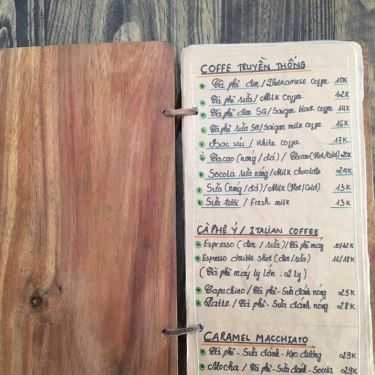 COFFE TRUYỀN THỐNG
Cà phê đen / Vietnamese coffee 10K
Cà phê sữa / Milk coffee 12K
Cà phê đen SG / Saigon black coffee 14K
Cà phê sữa SG / Saigon milk coffee 16K
Bạc xỉu / White coffee 17K
Cacao (nóng / đá) / Cacao (Hot/Cold) 20K
Socola sữa nóng / Milk chocolate 20K
Sữa (nóng / đá) / Milk (Hot/Cold) 13K
Sữa tươi / Fresh milk 13K
CÀ PHÊ Ý / ITALIAN COFFEE
Espresso (đen / sữa) / Cà phê máy 10/12K
Espresso double shot (đen / sữa) 16/18K
(Cà phê máy ly lớn : 02 ly)
Capuchino / Cà phê - Sữa đánh nóng 25K
Latte / Cà phê - Sữa đánh nóng 28K
CARAMEL MACCHIATO
Cà phê - Sữa đánh - Kẹo đường 29K
Mocha / Cà phê - Sữa đánh - Socola 29K